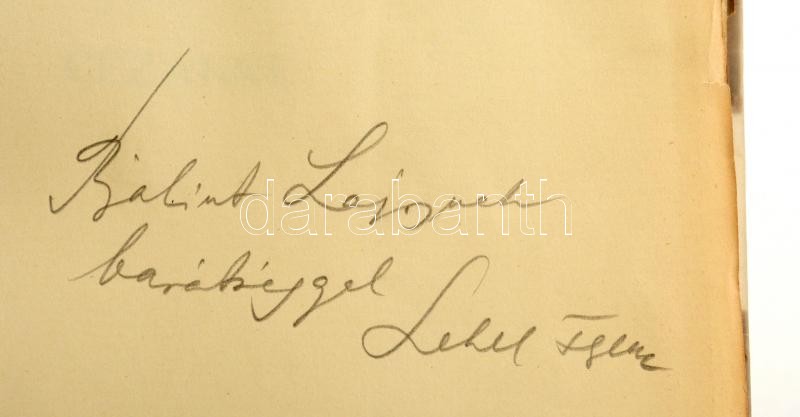 Bálint Lajosnak
darabanth
barátsággal
Lehel Ferenc